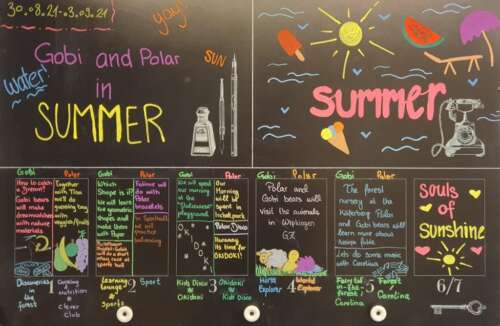 30.08.21-3.09.21
yay!
Gobi and Polar
in
SUMMER
SUN
Water
Summer
Gobi
Polar
How to catch
a Dream?
Gobi
bears will
make
dreamcatches
with natural
materials
Together
with Tina
we'll do
1
Discovering
in the
forest
Cooking &
Nutrition
+
clever
Club
Gobi
Polar
Which
Shape is it?
We will learn
the geometric
shapes and
make them
with Paper
Fatima will
do with
Polar
bracelets
In Turnhalle
we will
practice
balancing
2
Learning
Lounge
&
Sports
Sport
Gobi
Polar
We will spend
our morning
at the
Playground
Our
Morning
will be
spent in
Polar Disco
Running
time for
ONIDOKI!
3
Kids Disco
Onidoki
Onidoki
Kids Disco
Gobi
Polar
Polar and
Gobi bears will
visit the animals
in Wipkingen
GZ
4
World
Explorer
World
Explorer
Gobi
Polar
The forest
nursery at the
Käferberg Polar
and Gobi bears will
learn more about
Let's do some music
with Carolina
5
Fairytale
in the
forest
Carolina
Forest
Carolina
Souls
of
Sunshine
6/7